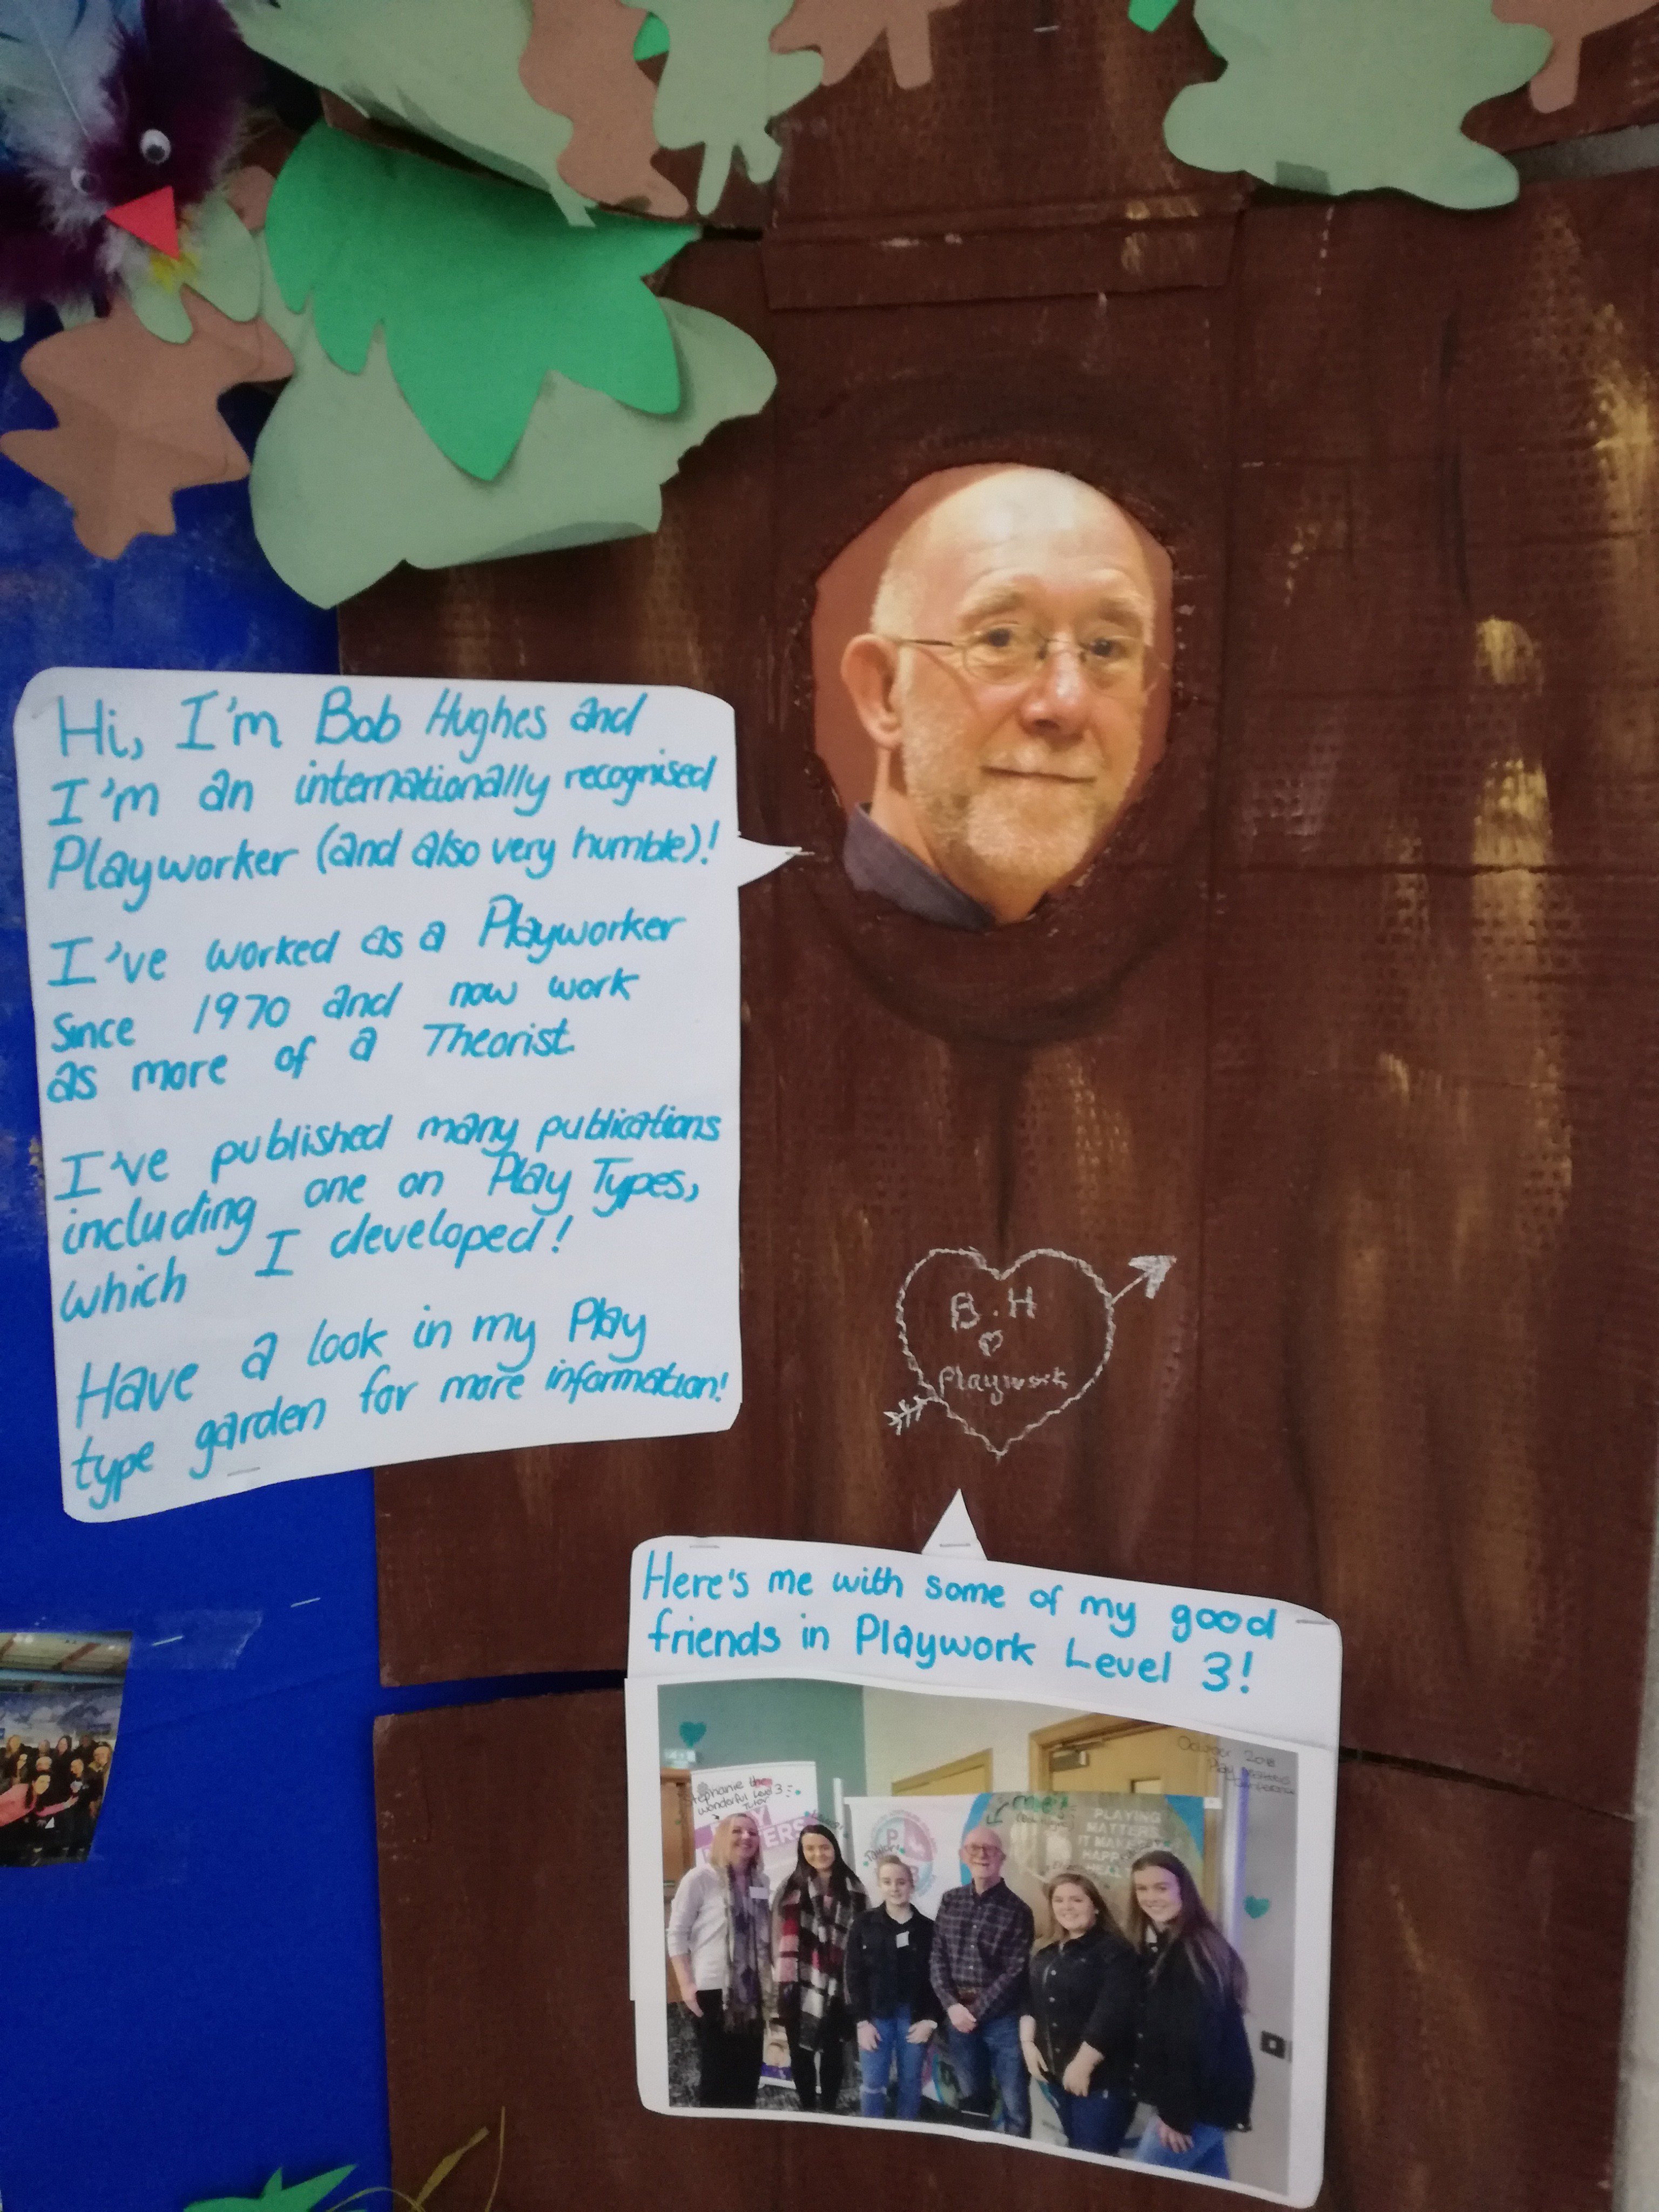 Hi, I'm Bob Hughes and
I'm an internationally recognised
Playworker (and also very humble)!
I've worked as a Playworker
Since 1970 and now work
as more of a Theorist.
I've published many publications
including one on Play Types,
which I developed!
Have a look in my Play
type garden for more information!
B.H
Playwork
Here's me with some of my good
friends in Playwork Level 3!
October 2018
Play
Conference
Stephanie the
wonderful Level 3
Tutor
PLAYING
MATTERS
IT MAKES
HAPP
HEAL